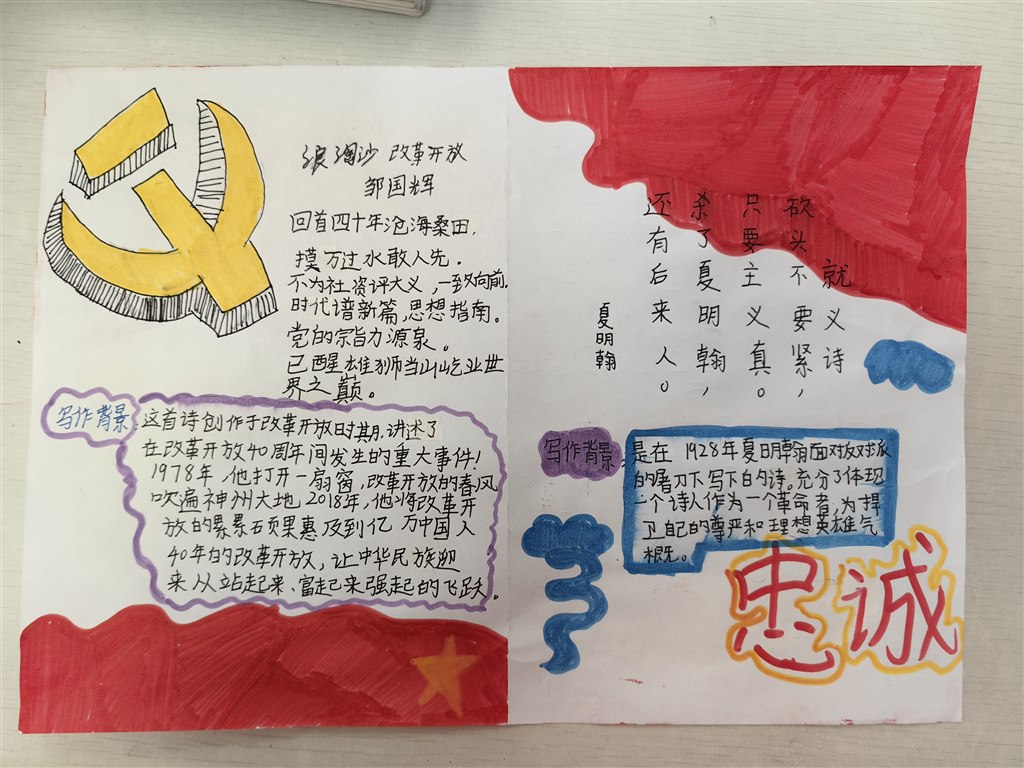 浪淘沙 改革开放
邹国辉
回首四十年沧海桑田,
摸万过水敢人先.
不为社资评大义,一致向前.
时代谱新篇,思想指南。
党的宗旨力源泉。
已醒雄狮当山屹业世
界之巅。
写作背景:
这首诗创作于改革开放时期,讲述了
在改革开放40周年间发生的重大事件!
1978年,他打开一扇窗,改革开放的春风
吹遍神州大地,2018年,他将改革开
放的累累硕果惠及到亿万中国人
40年的改革开放,让中华民族迎
来从站起来、富起来强起的飞跃。
就义诗
砍头不要紧,
只要主义真。
杀了夏明翰,
还有后来人。
夏明翰
写作背景:
是在1928年夏明翰面对反对派
的屠刀下写下的诗。充分了体现
一个诗人作为一个革命者,为捍
卫自己的尊严和理想英雄气
概。
忠诚